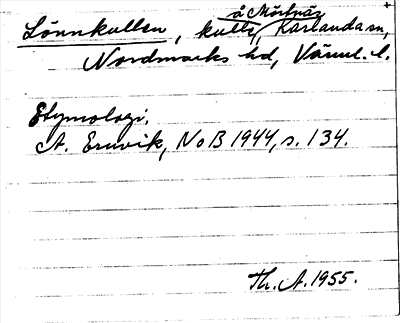 Lönnkullen, kulle, å Mörtnäs, Karlanda sn,
Nordmarks hd, Värml. l.
Etymologi.
A. Ernvik, NoB 1944, s. 134.
Th. A. 1955.